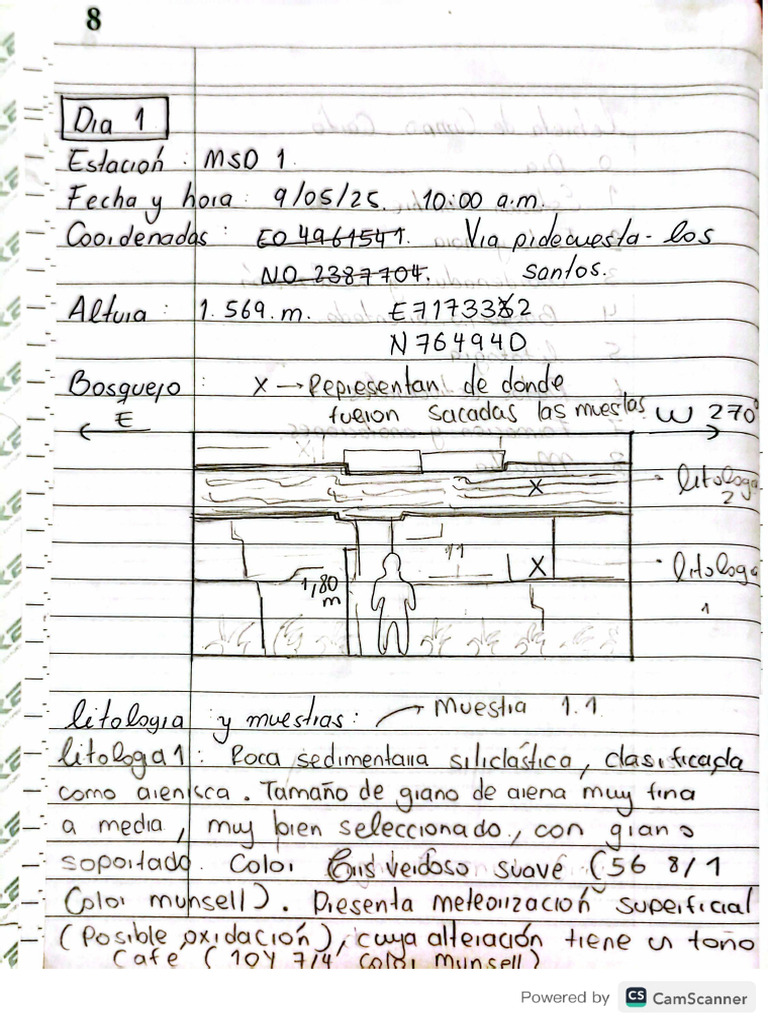 8
Dia 1
Estación : MSD 1.
Fecha y hora : 9/05/25. 10:00 a.m.
Coordenadas : EO 4961541. Via pidecuesta - los
NO 2387704. santos.
Altura : 1.569.m. E7173332
N764940
Bosquejo : X → Representan de donde
fueron sacadas las muestas
E W 270°
X litologa
2
1,80
m
X litologa
1
litologia y muestras: → Muestra 1.1
litologa 1 : Roca sedimentaria siliclástica, clasificada
como arenisca. Tamaño de grano de arena muy fina
a media, muy bien seleccionado, con grano
soportado. Color Gris verdoso suave (5G 8/1
Color munsell). Presenta meteorización superficial
(Posible oxidación), cuya alteración tiene un tono
Cafe (10Y 7/4 Color Munsell)
Powered by CS CamScanner